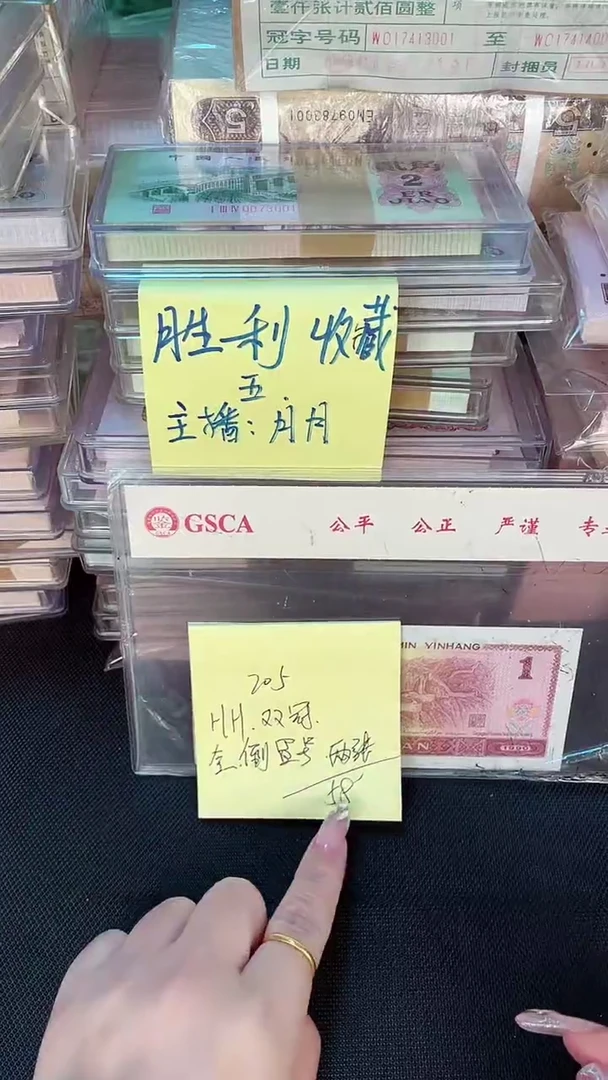 壹仟张计贰佰圆整
项
冠字号码 WD17413001 至
日期
封捆员
5
EM09783001
贰角
2
ER
JIAO
胜利收藏
五
主播:月月
GSCA 公平 公正 严谨
MIN YINHANG
1
205
HH.双冠.
全倒置号 两张
58
1990